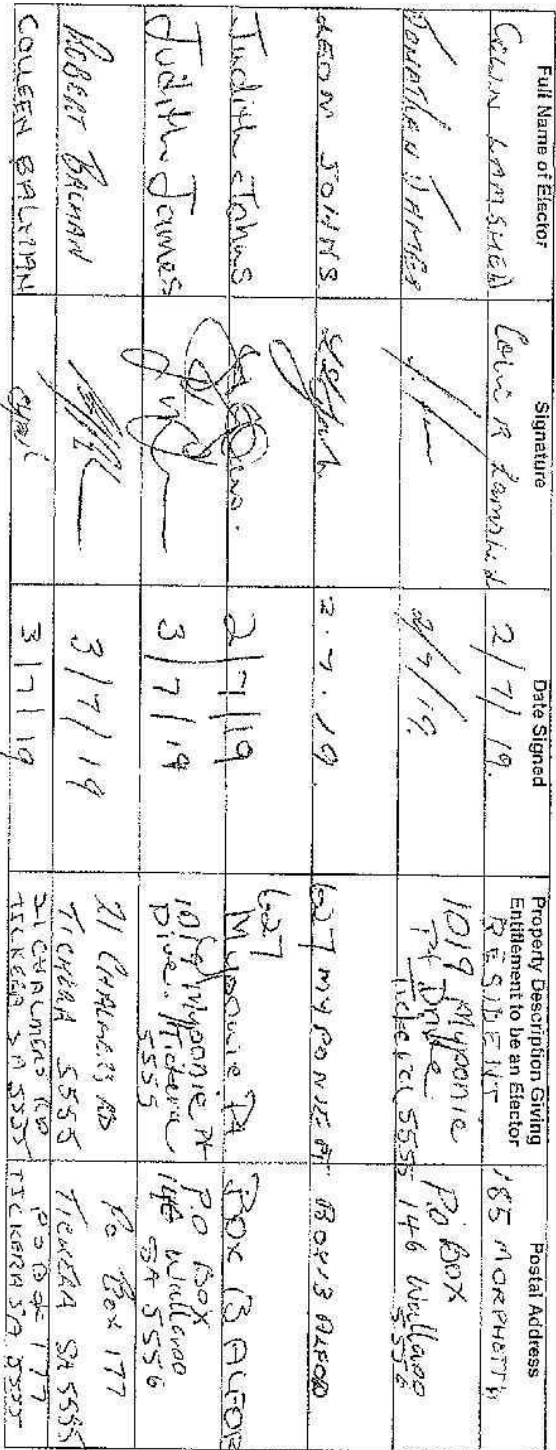 Full Name of Elector
Signature
Date Signed
Property Description Giving
Entitlement to be an Elector
Postal Address
COLIN LAMSHED
Colin R Lamshed
2/7/19.
RESIDENT
185 MORPHETT
JONATHAN JAMES
2/7/19.
1019 Myponie
Pt Drive
Tickera 5555
P.O BOX
146 Wallaroo
5556
LEON JOHNS.
2.7.19.
627 MYPONIE PT
BOX 13 ALFORD
Judith Johns
2/7/19
627
Myponie Pt
BOX 13 ALFOR
Judith James
3/7/19
1019 Myponie Pt
Drive. Tickera
5555
P.O BOX
146 Wallaroo
SA 5556
ROBERT BALMAN
3/7/19
21 CHALMERS RD
TICKERA 5555
Po Box 177
TICKERA SA 5555
COLLEEN BALMAN
3/7/19
21 CHALMERS RD
TICKERA SA 5555
PO BOX 177
TICKERA SA 5555